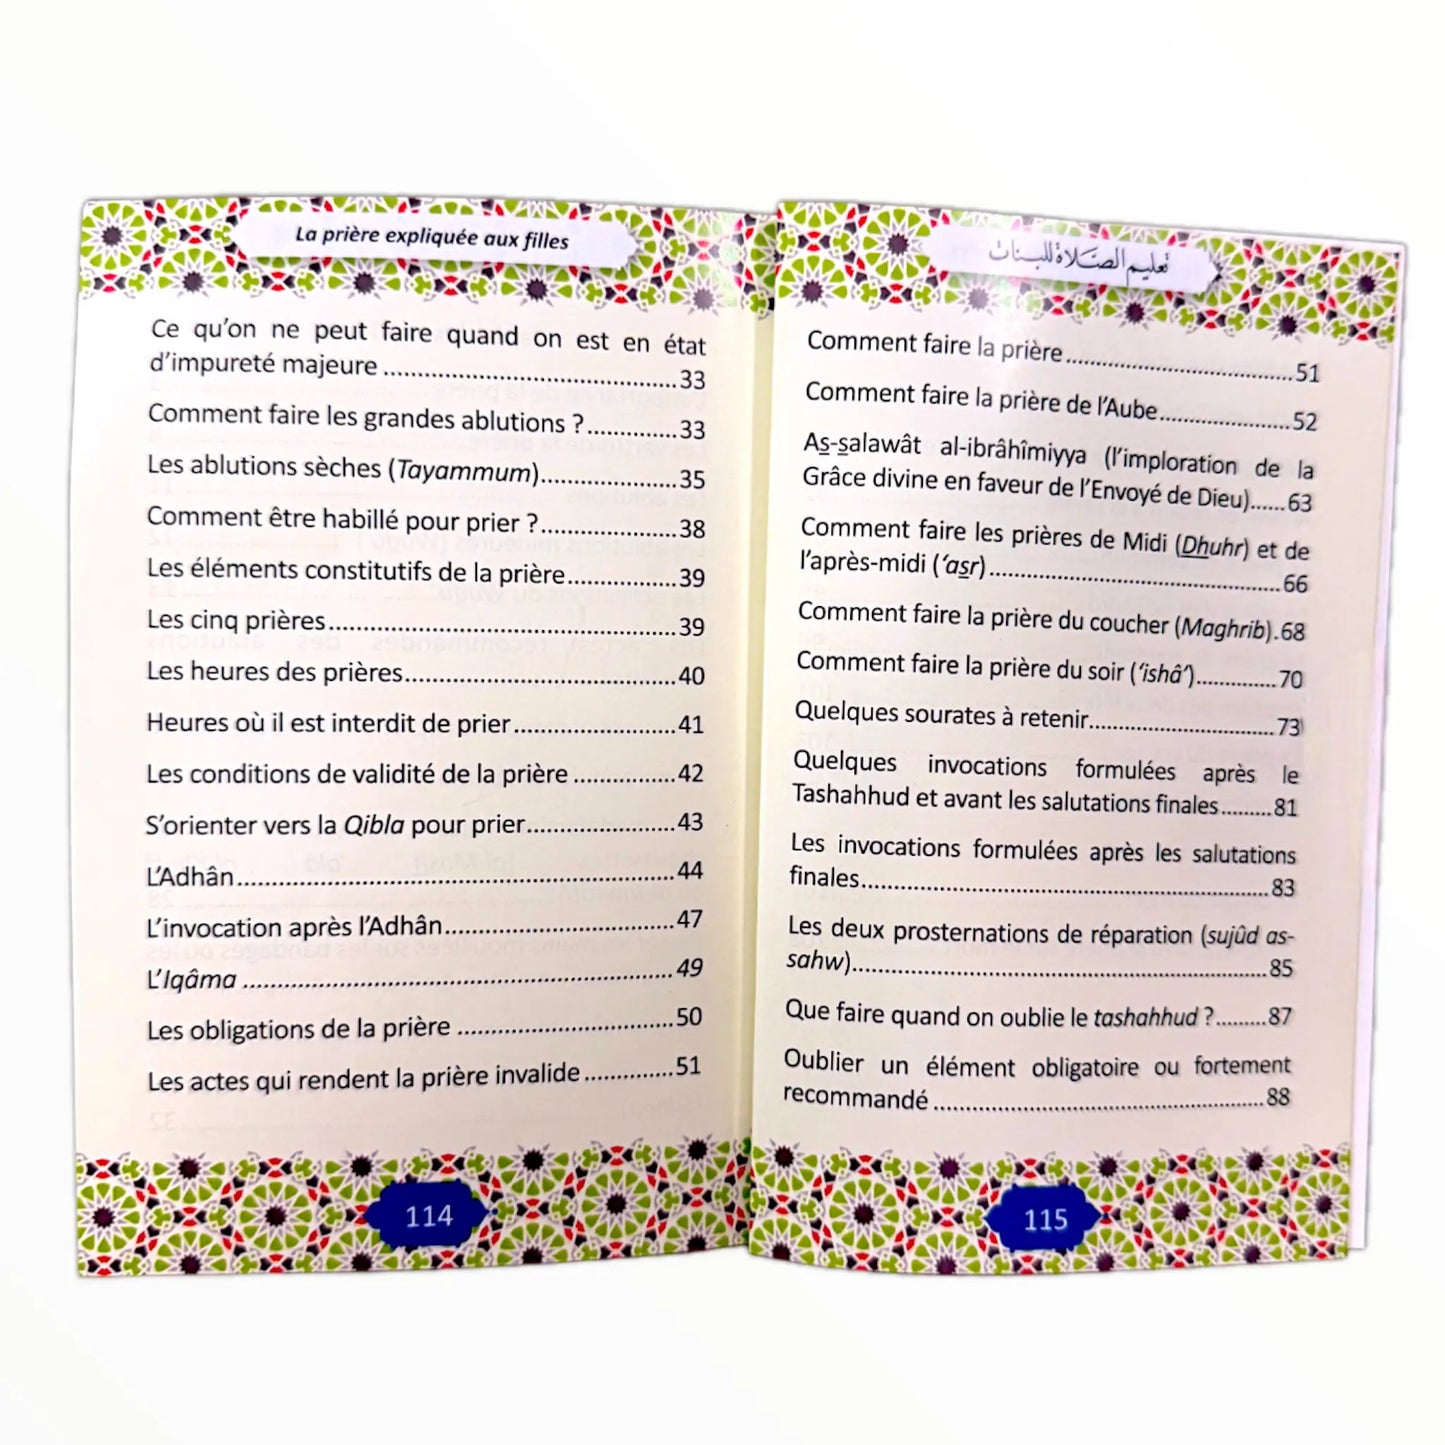 La prière expliquée aux filles
Ce qu’on ne peut faire quand on est en état
d’impureté majeure ............................................33
Comment faire les grandes ablutions ?..............33
Les ablutions sèches (Tayammum).....................35
Comment être habillé pour prier ?.....................38
Les éléments constitutifs de la prière.................39
Les cinq prières....................................................39
Les heures des prières.........................................40
Heures où il est interdit de prier.........................41
Les conditions de validité de la prière ................42
S’orienter vers la Qibla pour prier.......................43
L’Adhân..................................................................44
L’invocation après l’Adhân...................................47
L’Iqâma ................................................................49
Les obligations de la prière .................................50
Les actes qui rendent la prière invalide ..............51
114
تعليم الصلاة للبنات
Comment faire la prière...................................51
Comment faire la prière de l’Aube....................52
As-salawât al-ibrâhîmiyya (l’imploration de la
Grâce divine en faveur de l’Envoyé de Dieu)......63
Comment faire les prières de Midi (Dhuhr) et de
l’après-midi (‘asr)..............................................66
Comment faire la prière du coucher (Maghrib).68
Comment faire la prière du soir (‘ishâ’)..............70
Quelques sourates à retenir..............................73
Quelques invocations formulées après le
Tashahhud et avant les salutations finales.........81
Les invocations formulées après les salutations
finales................................................................83
Les deux prosternations de réparation (sujûd as-
sahw)..................................................................85
Que faire quand on oublie le tashahhud ?.........87
Oublier un élément obligatoire ou fortement
recommandé ......................................................88
115